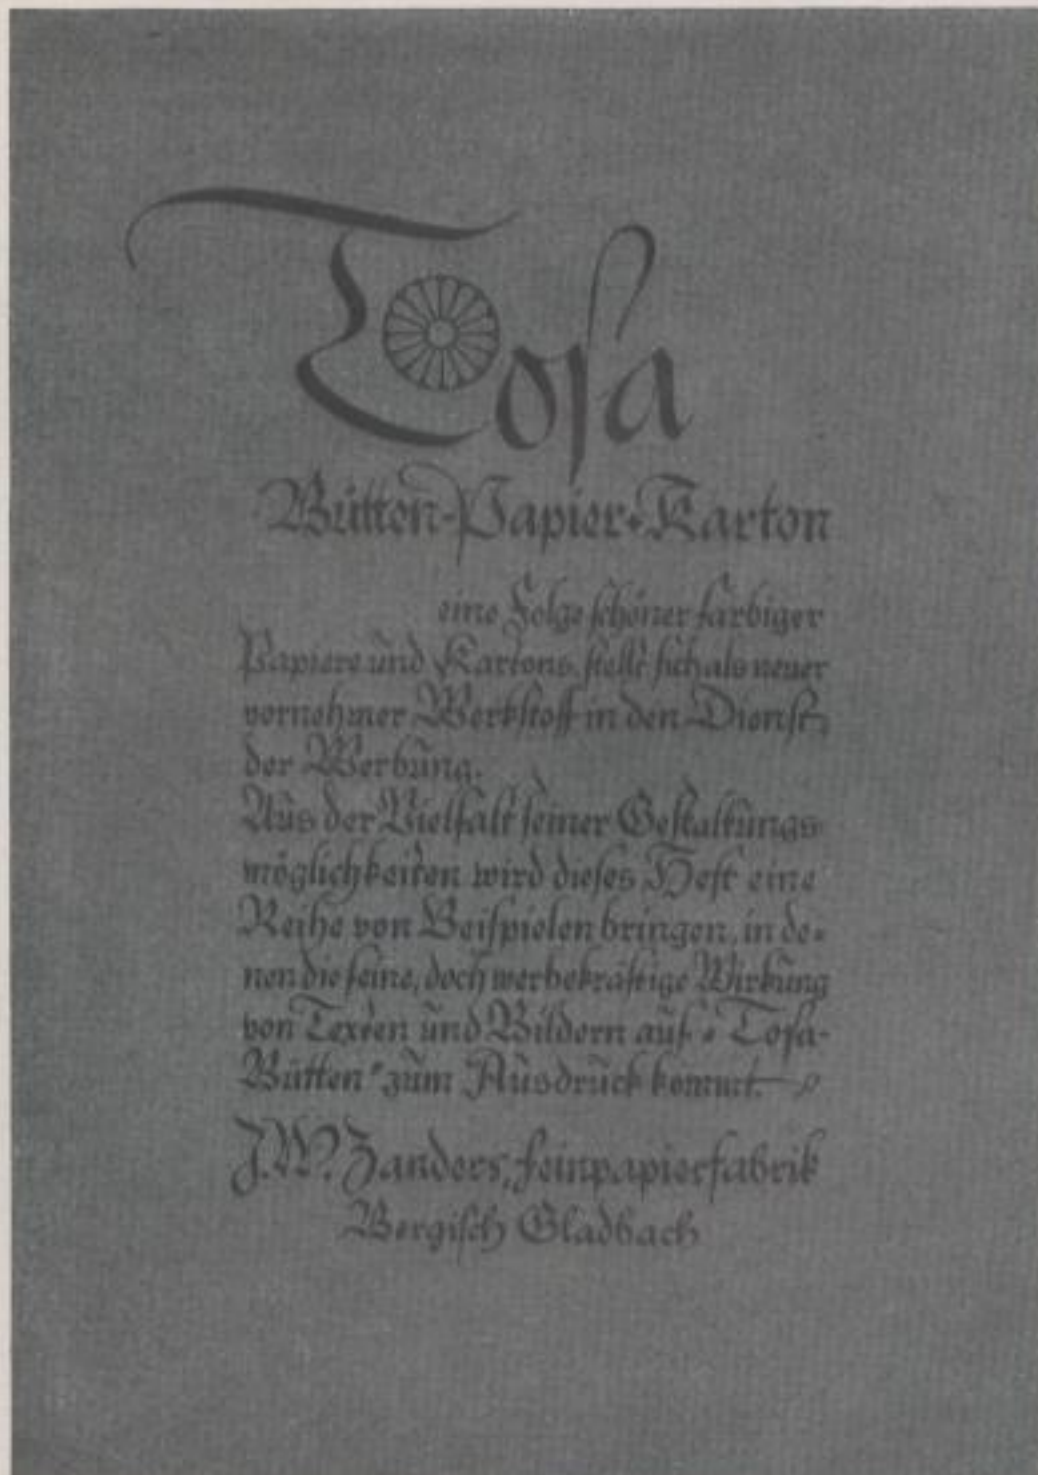 Toſa
Bütten-Papier+Karton
eine Folge ſchöner farbiger
Papiere und Kartons, ſtellt ſich als neuer
vornehmer Werkſtoff in den Dienſt
der Werbung.
Aus der Vielfalt ſeiner Geſtaltungs-
möglichkeiten wird dieſes Heft eine
Reihe von Beiſpielen bringen, in de=
nen die feine, doch werbekräftige Wirkung
von Texten und Bildern auf „Toſa-
Bütten" zum Ausdruck kommt.
J.W. Zanders, Feinpapierfabrik
Bergiſch Gladbach